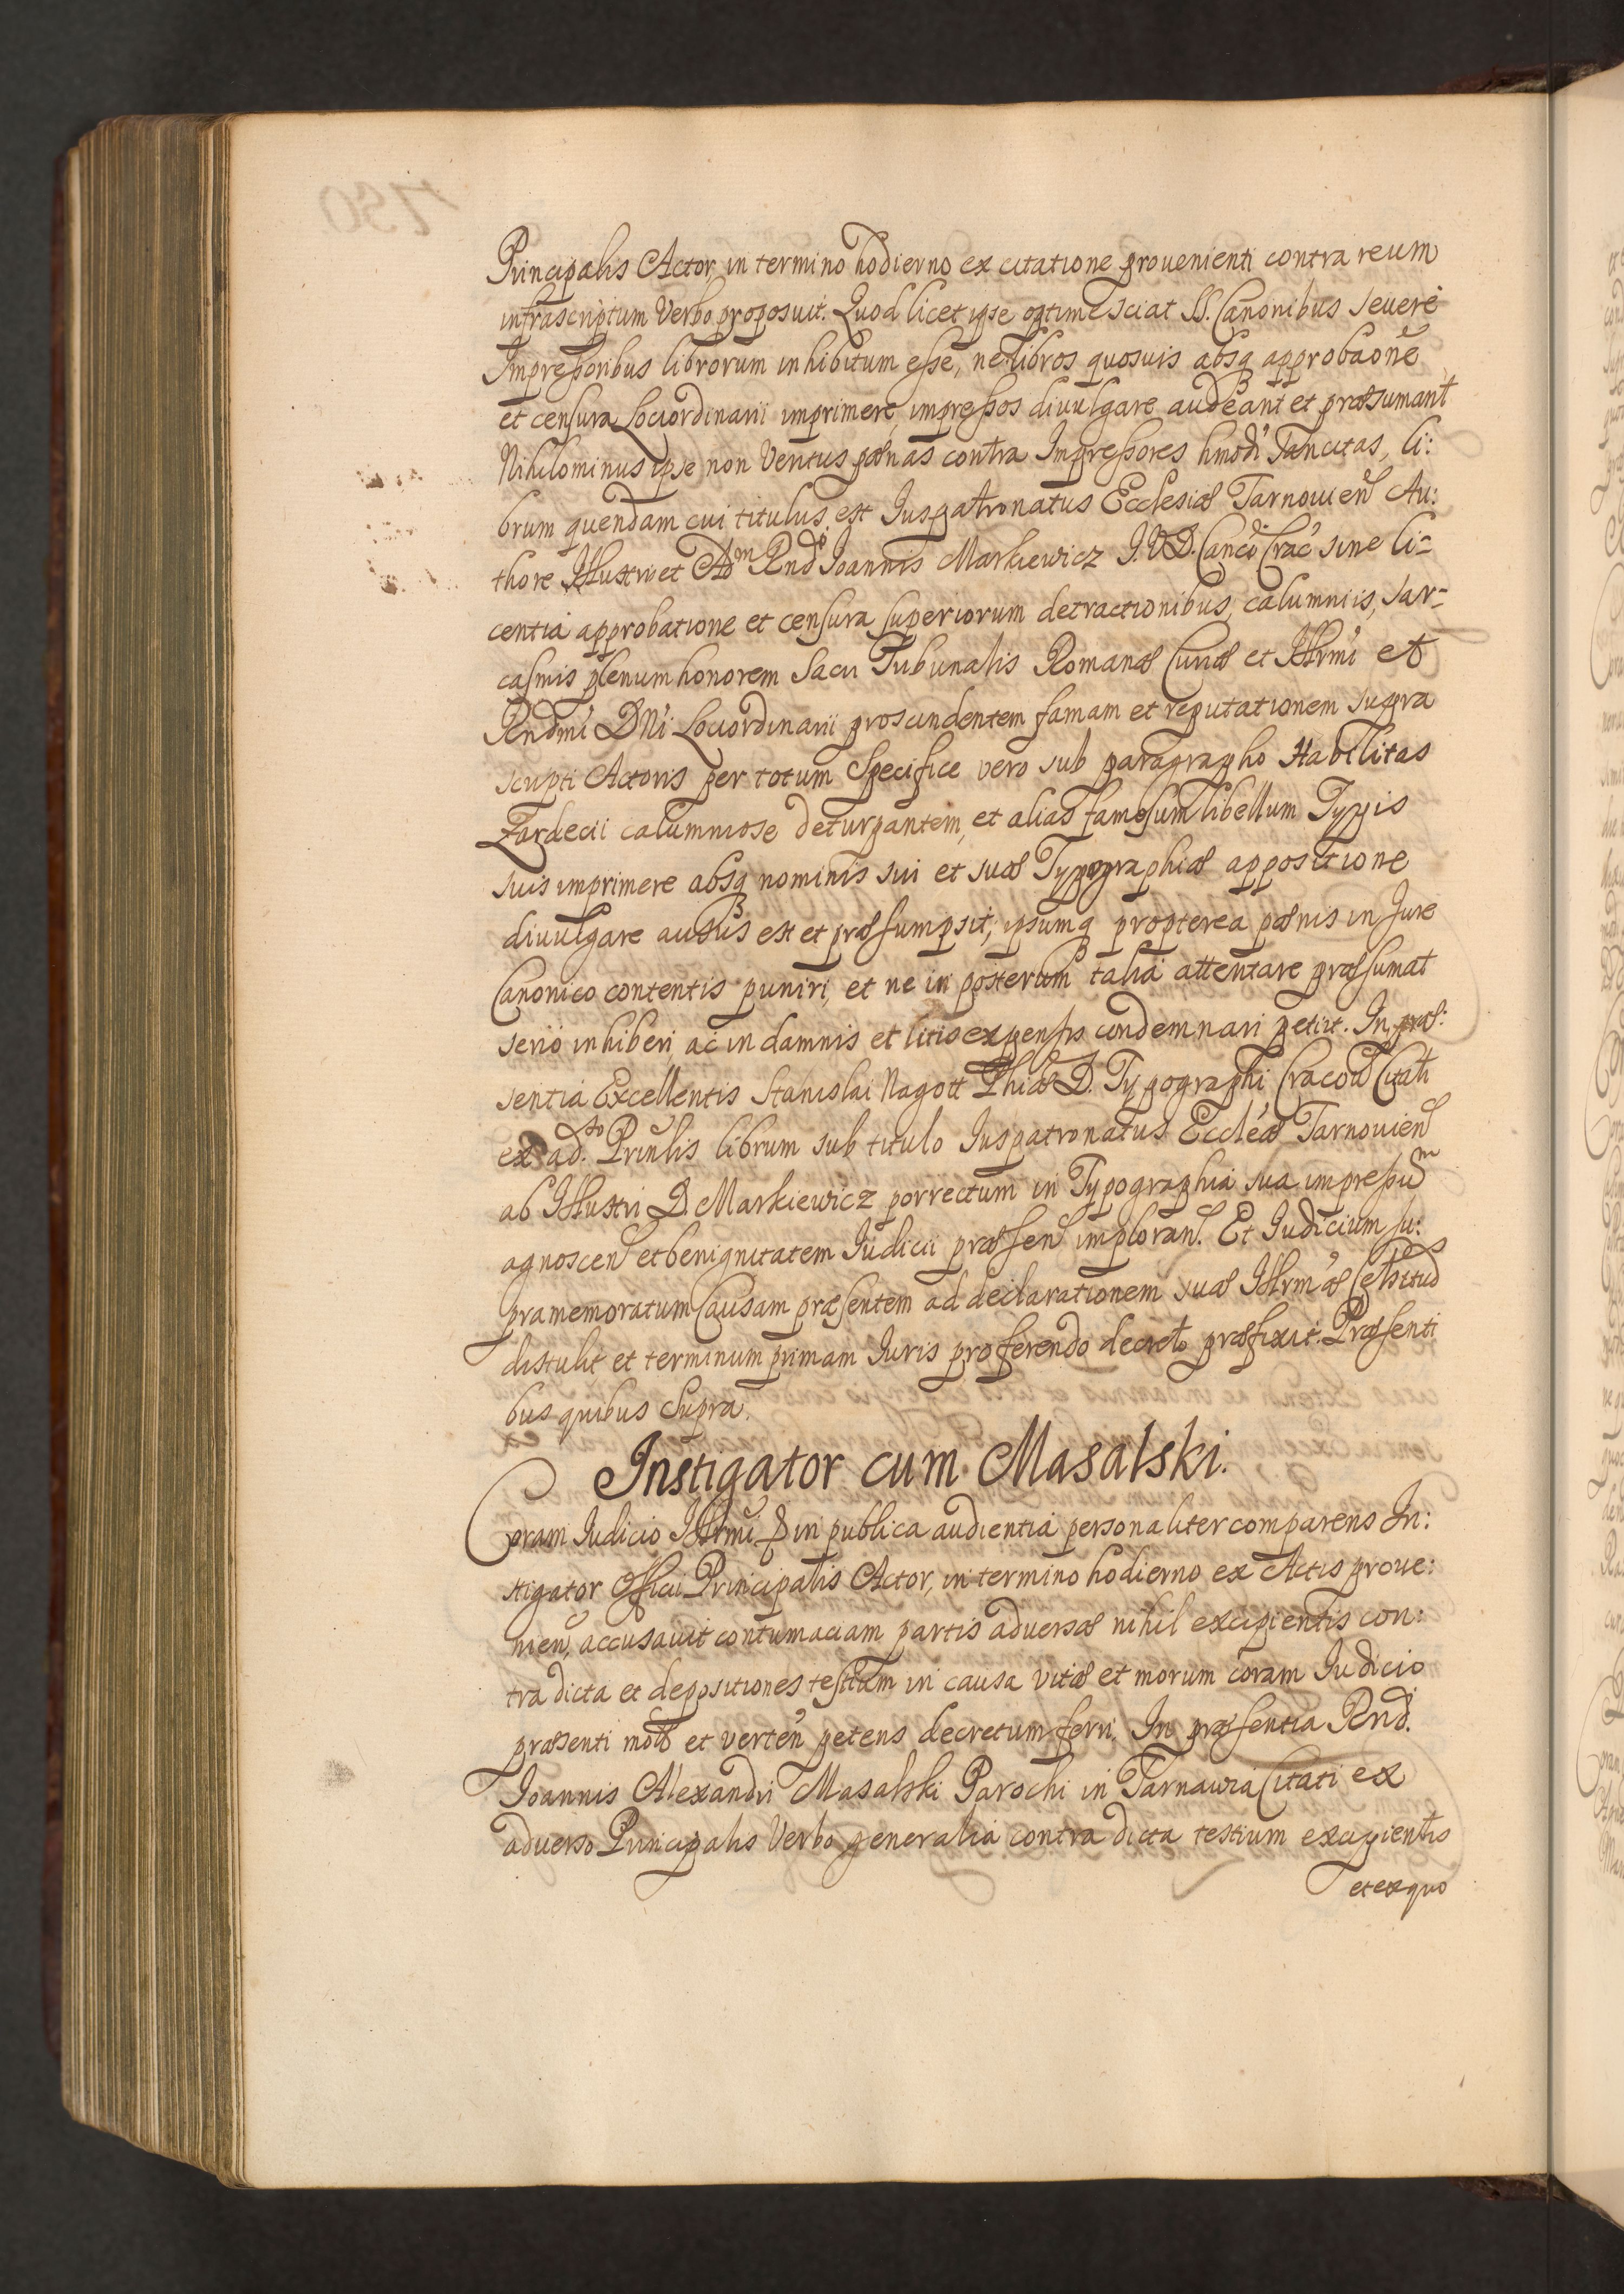 Principalis Actor in termino hodierno ex citatione prouenienti contra reum
infrascriptum Verbo proposuit. Quod licet ipse optime sciat SS. Canonibus seuerè
Impressoribus librorum inhibitum esse, ne libros quosuis absq approbaõne
et censura Lociordinarii imprimere, impressos diuulgare audeant et præsumant
Nihilominus ipse non Veritus pœnas contra Impressores hmõdi sancitas, li:
brum quendam cui titulus est Iuspatronatus Ecclesiæ Tarnouien Au:
thore Illustri et Adm Rndo Joannis Markiewicz J.V.D. Canco Crac sine li=
centia approbatione et censura superiorum detractionibus, calumniis, sar=
casmis plenum honorem Sacri Tribunalis Romanæ Curiæ et Illrmi et
Rndmi DNi Lociordinarii proscindentem famam et reputationem supra
scripti Actoris per totum Specifice vero sub paragrapho Habilitas
Zardecii calumniose deturpantem, et alias famosum libellum Typis
suis imprimere absq nominis sui et suæ Typographiæ appositione
diuulgare ausus est et præsumpsit, ipsumq propterea pœnis in Jure
Canonico contentis puniri, et ne in posterum talia attentare præsumat
serio inhiberi, ac in damnis et litis expensis condemnari petiit. In præ:
sentia Excellentis Stanislai Nagott Phiæ D. Typographi Cracou Citati
ex adso Prinlis librum sub titulo Iuspatronatus Eccleæ Tarnouien
ab Illustri D. Markiewicz porrectum in Typographia sua impressum
agnoscen et benignitatem Iudicii præsen imploran. Et Iudicium su:
pramemoratum Causam præsentem ad declarationem suæ Illrmæ Celsitud
distulit et terminum primam Iuris proferendo decreto præfixit. Præsenti
bus quibus Supra.
Instigator cum Masalski.
Coram Iudicio Illrmi & in publica audientia personaliter comparens In:
stigator Officii Principalis Actor, in termino hodierno ex Actis proue:
nien, accusauit contumaciam partis aduersæ nihil excipientis con:
tra dicta et depositiones testium in causa vitæ et morum coram Iudicio
præsenti mota et verten petens decretum ferri. In præsentia Rnd.
Joannis Alexandri Masalski Parochi in Tarnawa Citati ex
aduerso Principalis Verbo generalia contra dicta testium excipientis
et ex quo